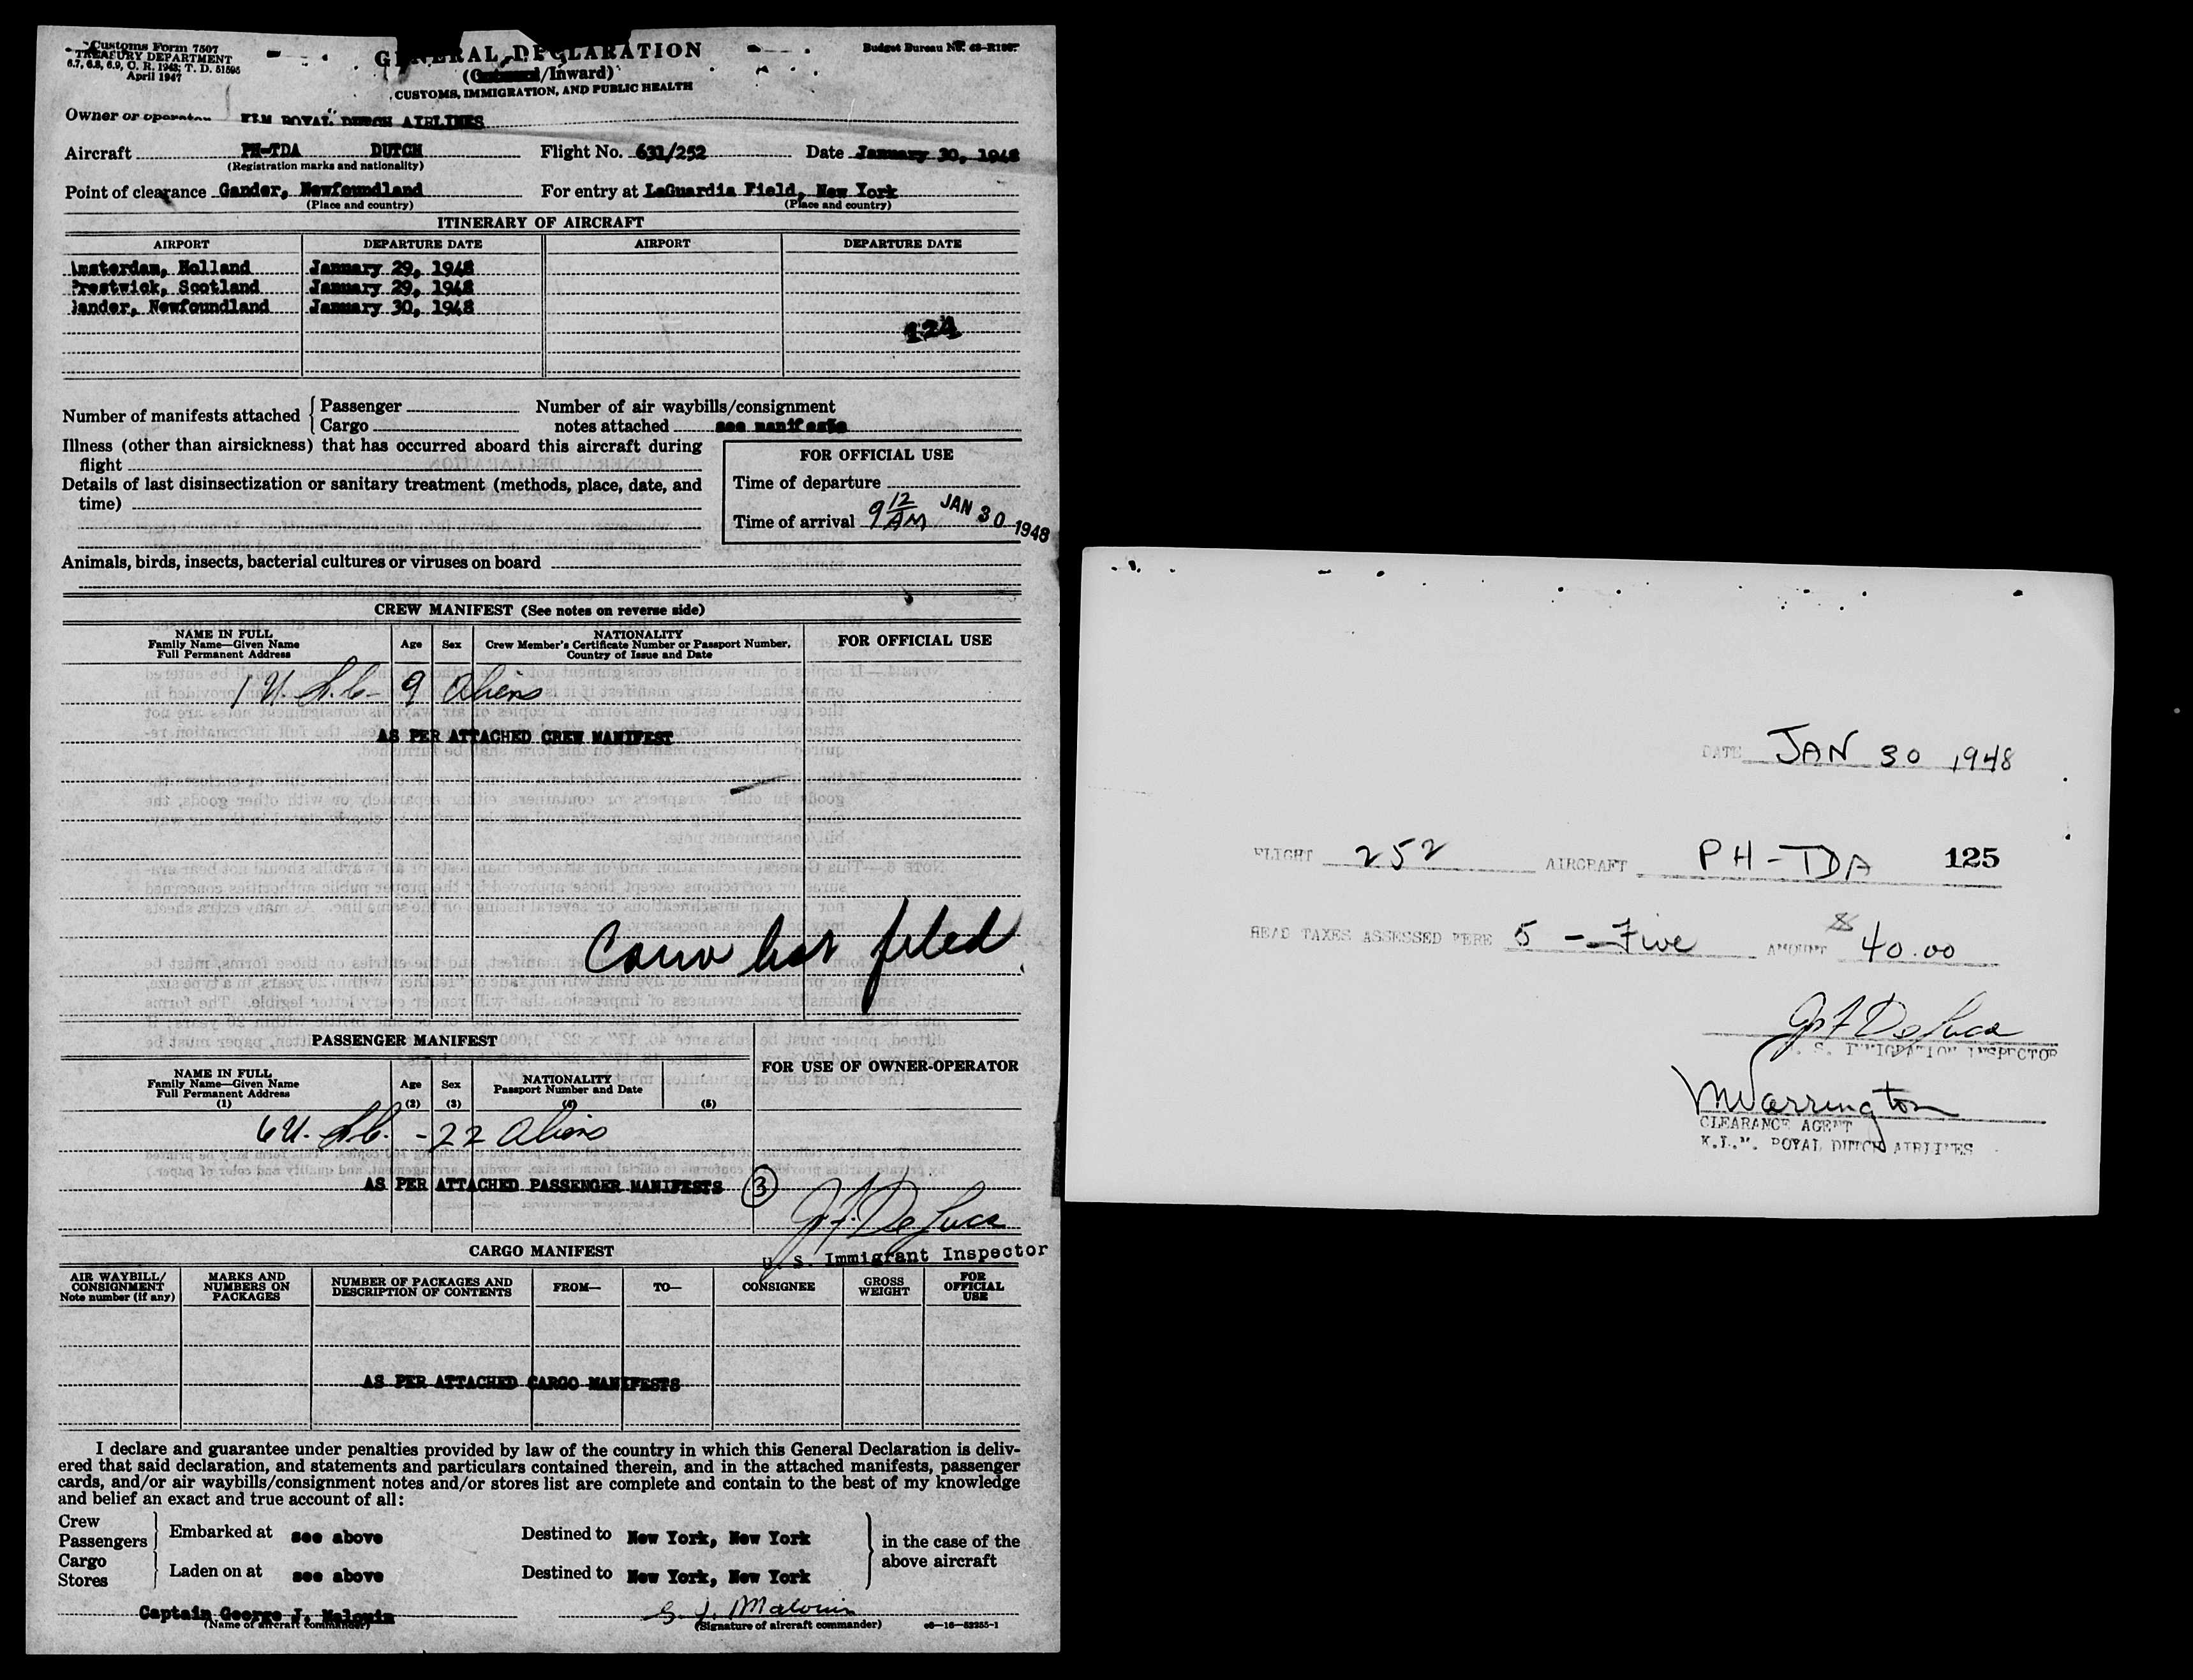 Customs Form 7507
TREASURY DEPARTMENT
6.7, 6.8, 6.9, C. R. 1943; T. D. 51595
April 1947
GENERAL DECLARATION
(/Inward)
CUSTOMS, IMMIGRATION, AND PUBLIC HEALTH
Budget Bureau No.
Owner or operator KLM ROYAL DUTCH AIRLINES
Aircraft PH-TDA DUTCH Flight No. 631/252 Date January 30, 1948
(Registration marks and nationality)
Point of clearance Gander, Newfoundland For entry at LaGuardia Field, New York
(Place and country) (Place and country)
ITINERARY OF AIRCRAFT
AIRPORT DEPARTURE DATE AIRPORT DEPARTURE DATE
Amsterdam, Holland January 29, 1948
Prestwick, Scotland January 29, 1948
Gander, Newfoundland January 30, 1948
124
Number of manifests attached { Passenger
Cargo
Number of air waybills/consignment
notes attached see manifests
Illness (other than airsickness) that has occurred aboard this aircraft during
flight
Details of last disinsectization or sanitary treatment (methods, place, date, and
time)
FOR OFFICIAL USE
Time of departure
Time of arrival 9 12 AM JAN 30 1948
Animals, birds, insects, bacterial cultures or viruses on board
CREW MANIFEST (See notes on reverse side)
NAME IN FULL
Family Name—Given Name
Full Permanent Address
Age Sex
NATIONALITY
Crew Member's Certificate Number or Passport Number,
Country of Issue and Date
FOR OFFICIAL USE
1 U.S.C. 9 Aliens
AS PER ATTACHED CREW MANIFEST
filed
PASSENGER MANIFEST
FOR USE OF OWNER-OPERATOR
NAME IN FULL
Family Name—Given Name
Full Permanent Address
(1)
Age
(2)
Sex
(3)
NATIONALITY
Passport Number and Date
(4)
(5)
6 U.S.C. - 22 Aliens
AS PER ATTACHED PASSENGER MANIFESTS 3
J. F. De Luca
U. S. Immigrant Inspector
CARGO MANIFEST
AIR WAYBILL/
CONSIGNMENT
Note number (if any)
MARKS AND
NUMBERS ON
PACKAGES
NUMBER OF PACKAGES AND
DESCRIPTION OF CONTENTS
FROM— TO— CONSIGNEE
GROSS
WEIGHT
FOR
OFFICIAL
USE
AS PER ATTACHED CARGO MANIFESTS
I declare and guarantee under penalties provided by law of the country in which this General Declaration is deliv-
ered that said declaration, and statements and particulars contained therein, and in the attached manifests, passenger
cards, and/or air waybills/consignment notes and/or stores list are complete and contain to the best of my knowledge
and belief an exact and true account of all:
Crew
Passengers
Cargo
Stores
Embarked at see above Destined to New York, New York
Laden on at see above Destined to New York, New York
in the case of the
above aircraft
Captain George J. Malouin G. J. Malouin
(Name of aircraft commander) (Signature of aircraft commander) 16—52255-1
DATE JAN 30 1948
FLIGHT 252 AIRCRAFT PH-TDA 125
HEAD TAXES ASSESSED WERE 5 - Five AMOUNT $ 40.00
J. F. De Luca
U. S. IMMIGRATION INSPECTOR
M Warrington
CLEARANCE AGENT
K.L.M. ROYAL DUTCH AIRLINES